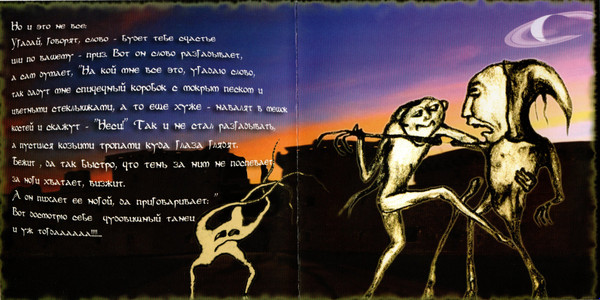 Но и это не все:
Угадай, говорят, слово - будет тебе счастье
или по вашему - приз. Вот он слово разгадывает,
а сам думает, "На кой мне все это, угадаю слово,
так дадут мне спичечный коробок с мокрым песком и
цветными стекляшками, а то еще хуже - навалят в мешок
костей и скажут - "Неси" Так и не стал разгадывать,
а пустился козьими тропами куда глаза глядят.
Бежит , да так быстро, что тень за ним не поспевает,
за ноги хватает, визжит.
А он пихает ее ногой, да приговаривает: "
Вот досмотрю себе чудовищный танец
и уж тогдаааааа!!!